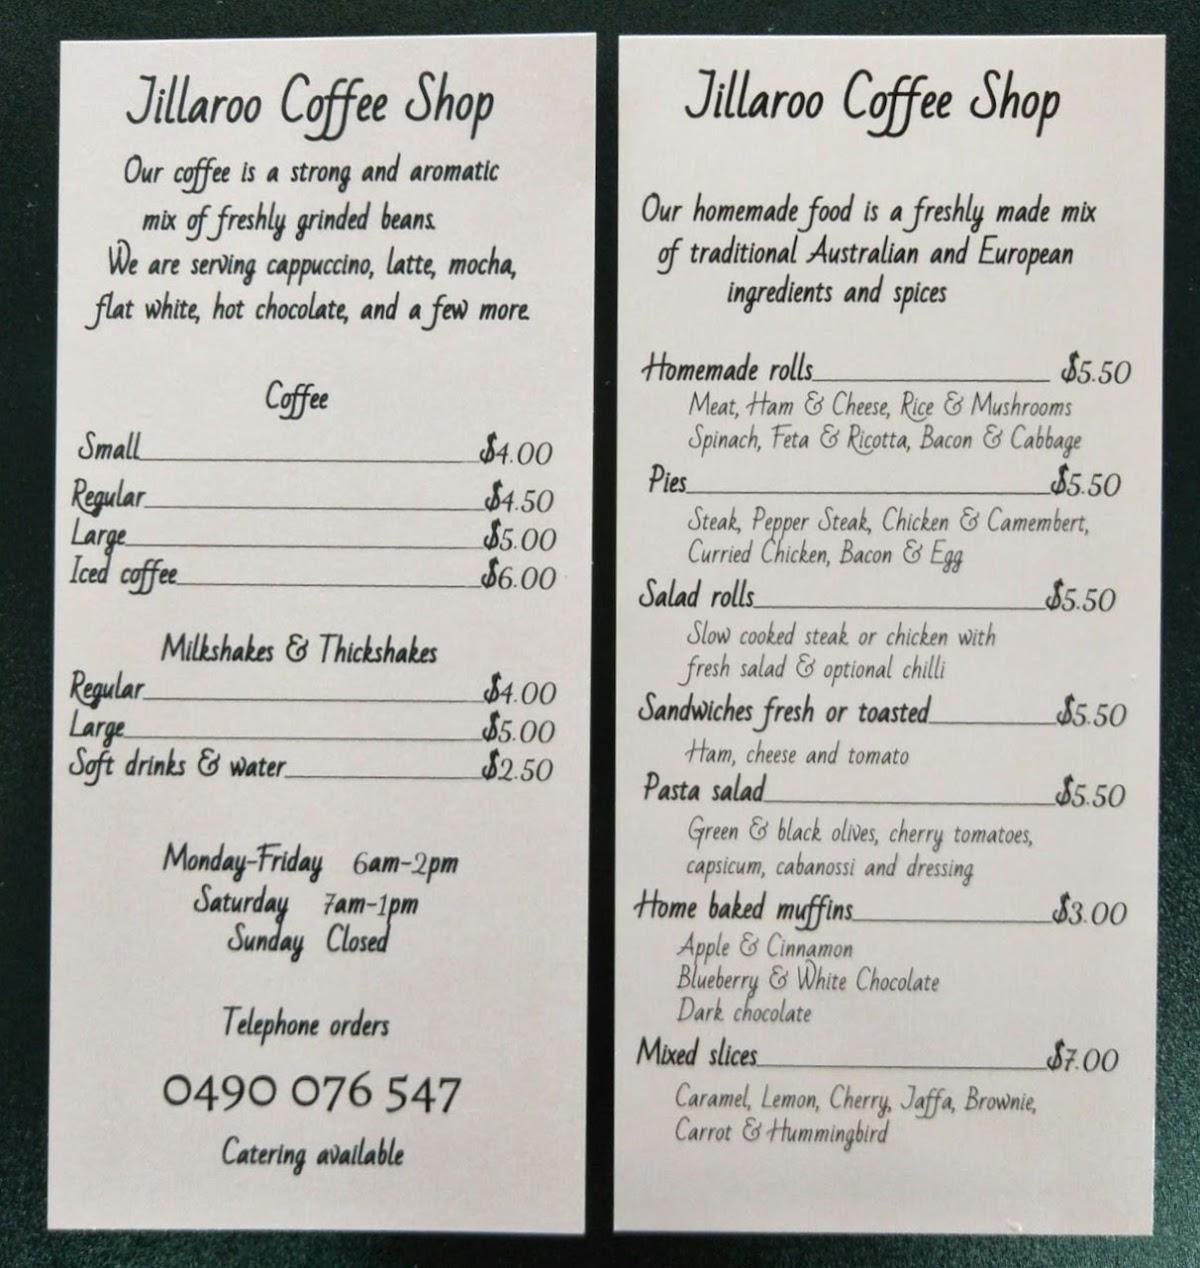 Jillaroo Coffee Shop
Our coffee is a strong and aromatic
mix of freshly grinded beans.
We are serving cappuccino, latte, mocha,
flat white, hot chocolate, and a few more.
Coffee
Small $4.00
Regular $4.50
Large $5.00
Iced coffee $6.00
Milkshakes & Thickshakes
Regular $4.00
Large $5.00
Soft drinks & water $2.50
Monday-Friday 6am-2pm
Saturday 7am-1pm
Sunday Closed
Telephone orders
0490 076 547
Catering available
Jillaroo Coffee Shop
Our homemade food is a freshly made mix
of traditional Australian and European
ingredients and spices
Homemade rolls $5.50
Meat, Ham & Cheese, Rice & Mushrooms
Spinach, Feta & Ricotta, Bacon & Cabbage
Pies $5.50
Steak, Pepper Steak, Chicken & Camembert,
Curried Chicken, Bacon & Egg
Salad rolls $5.50
Slow cooked steak or chicken with
fresh salad & optional chilli
Sandwiches fresh or toasted $5.50
Ham, cheese and tomato
Pasta salad $5.50
Green & black olives, cherry tomatoes,
capsicum, cabanossi and dressing
Home baked muffins $3.00
Apple & Cinnamon
Blueberry & White Chocolate
Dark chocolate
Mixed slices $7.00
Caramel, Lemon, Cherry, Jaffa, Brownie,
Carrot & Hummingbird